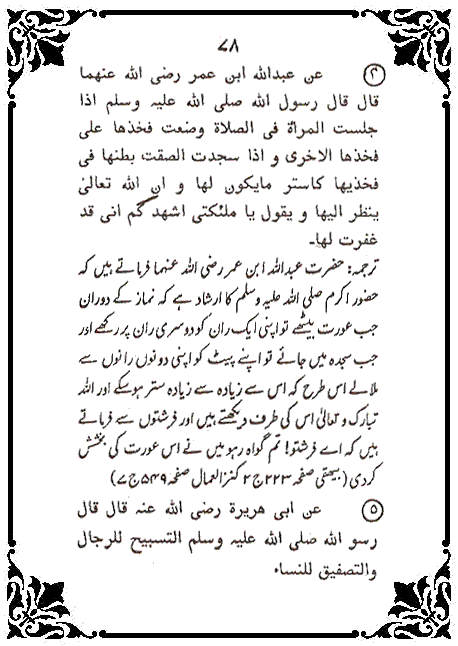 ۷۸
④ عن عبدالله ابن عمر رضی الله عنهما
قال قال رسول الله صلی الله علیہ وسلم اذا
جلست المرأة فی الصلاة وضعت فخذها علی
فخذها الاخری و اذا سجدت الصقت بطنها فی
فخذیها کاستر مایکون لها و ان الله تعالیٰ
ینظر الیها و یقول یا ملئکتی اشهد کم انی قد
غفرت لها۔
ترجمہ: حضرت عبداللہ ابن عمر رضی اللہ عنہما فرماتے ہیں کہ
حضور اکرم صلی اللہ علیہ وسلم کا ارشاد ہے کہ نماز کے دوران
جب عورت بیٹھے تو اپنی ایک ران کو دوسری ران پر رکھے اور
جب سجدہ میں جائے تو اپنے پیٹ کو اپنی دونوں رانوں سے
ملالے اس طرح کہ اس سے زیادہ سے زیادہ ستر ہوسکے اور اللہ
تبارک و تعالیٰ اس کی طرف دیکھتے ہیں اور فرشتوں سے فرماتے
ہیں کہ اے فرشتو! تم گواہ رہو میں نے اس عورت کی بخشش
کردی (بیھقی صفحہ ۲۲۳ ج ۲ کنزالعمال صفحہ ۵۴۹ ج ۷)
⑤ عن ابی هریرة رضی الله عنه قال قال
رسو الله صلی الله علیہ وسلم التسبیح للرجال
والتصفیق للنساء